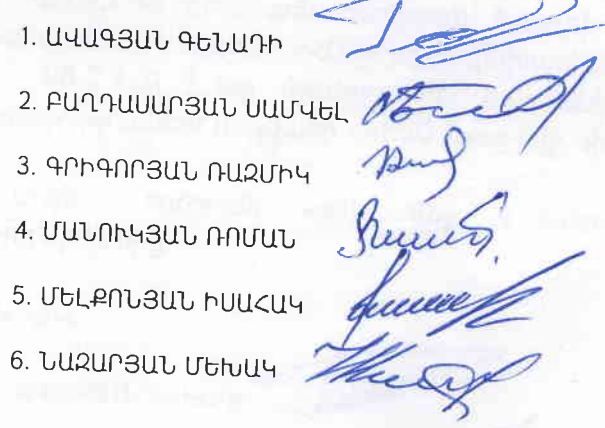 1. ԱՎԱԳՅԱՆ ԳԵՆԱԴԻ
2. ԲԱՂԴԱՍԱՐՅԱՆ ՍԱՄՎԵԼ
3. ԳՐԻԳՈՐՅԱՆ ՌԱԶՄԻԿ
4. ՄԱՆՈՒԿՅԱՆ ՌՈՄԱՆ
5. ՄԵԼՔՈՆՅԱՆ ԻՍԱՀԱԿ
6. ՆԱԶԱՐՅԱՆ ՄԵԽԱԿ